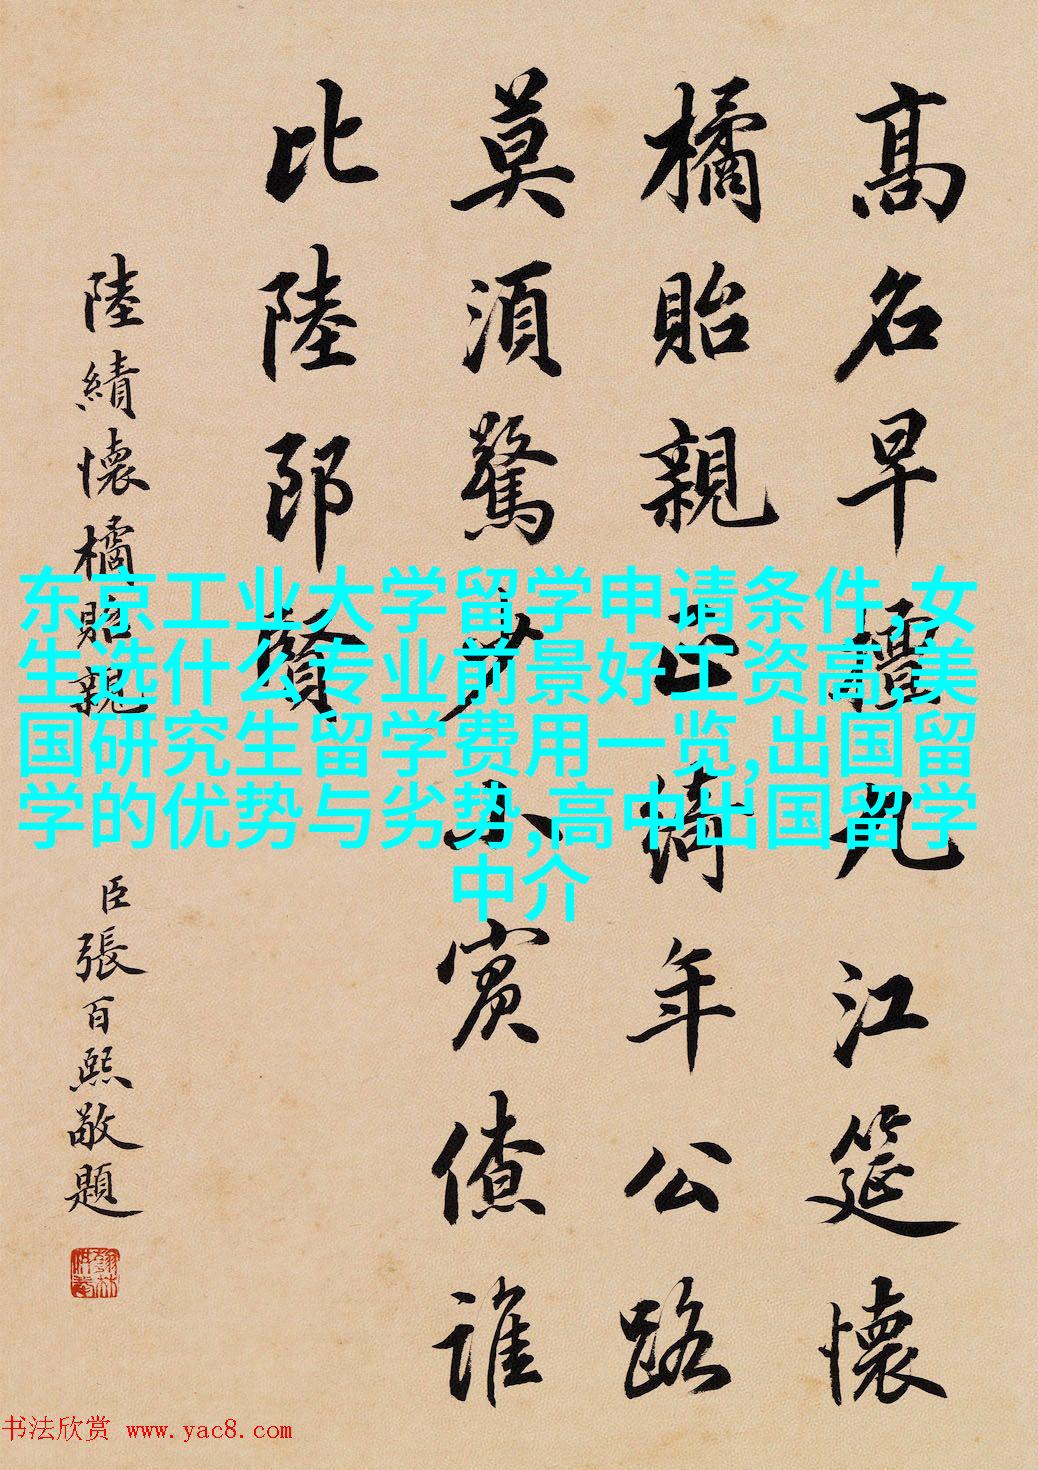 高名早擅九江筵懷
橘貽親正綺年公路
莫須驚少小賓僚誰
比陸郎賢
陸績懷橘貽親
臣張百熙敬題
东京工业大学留学申请条件,女
生选什么专业前景好工资高,美
国研究生留学费用一览,出国留
学的优势与劣势,高中出国留学
中介
书法欣赏 www.yac8.com